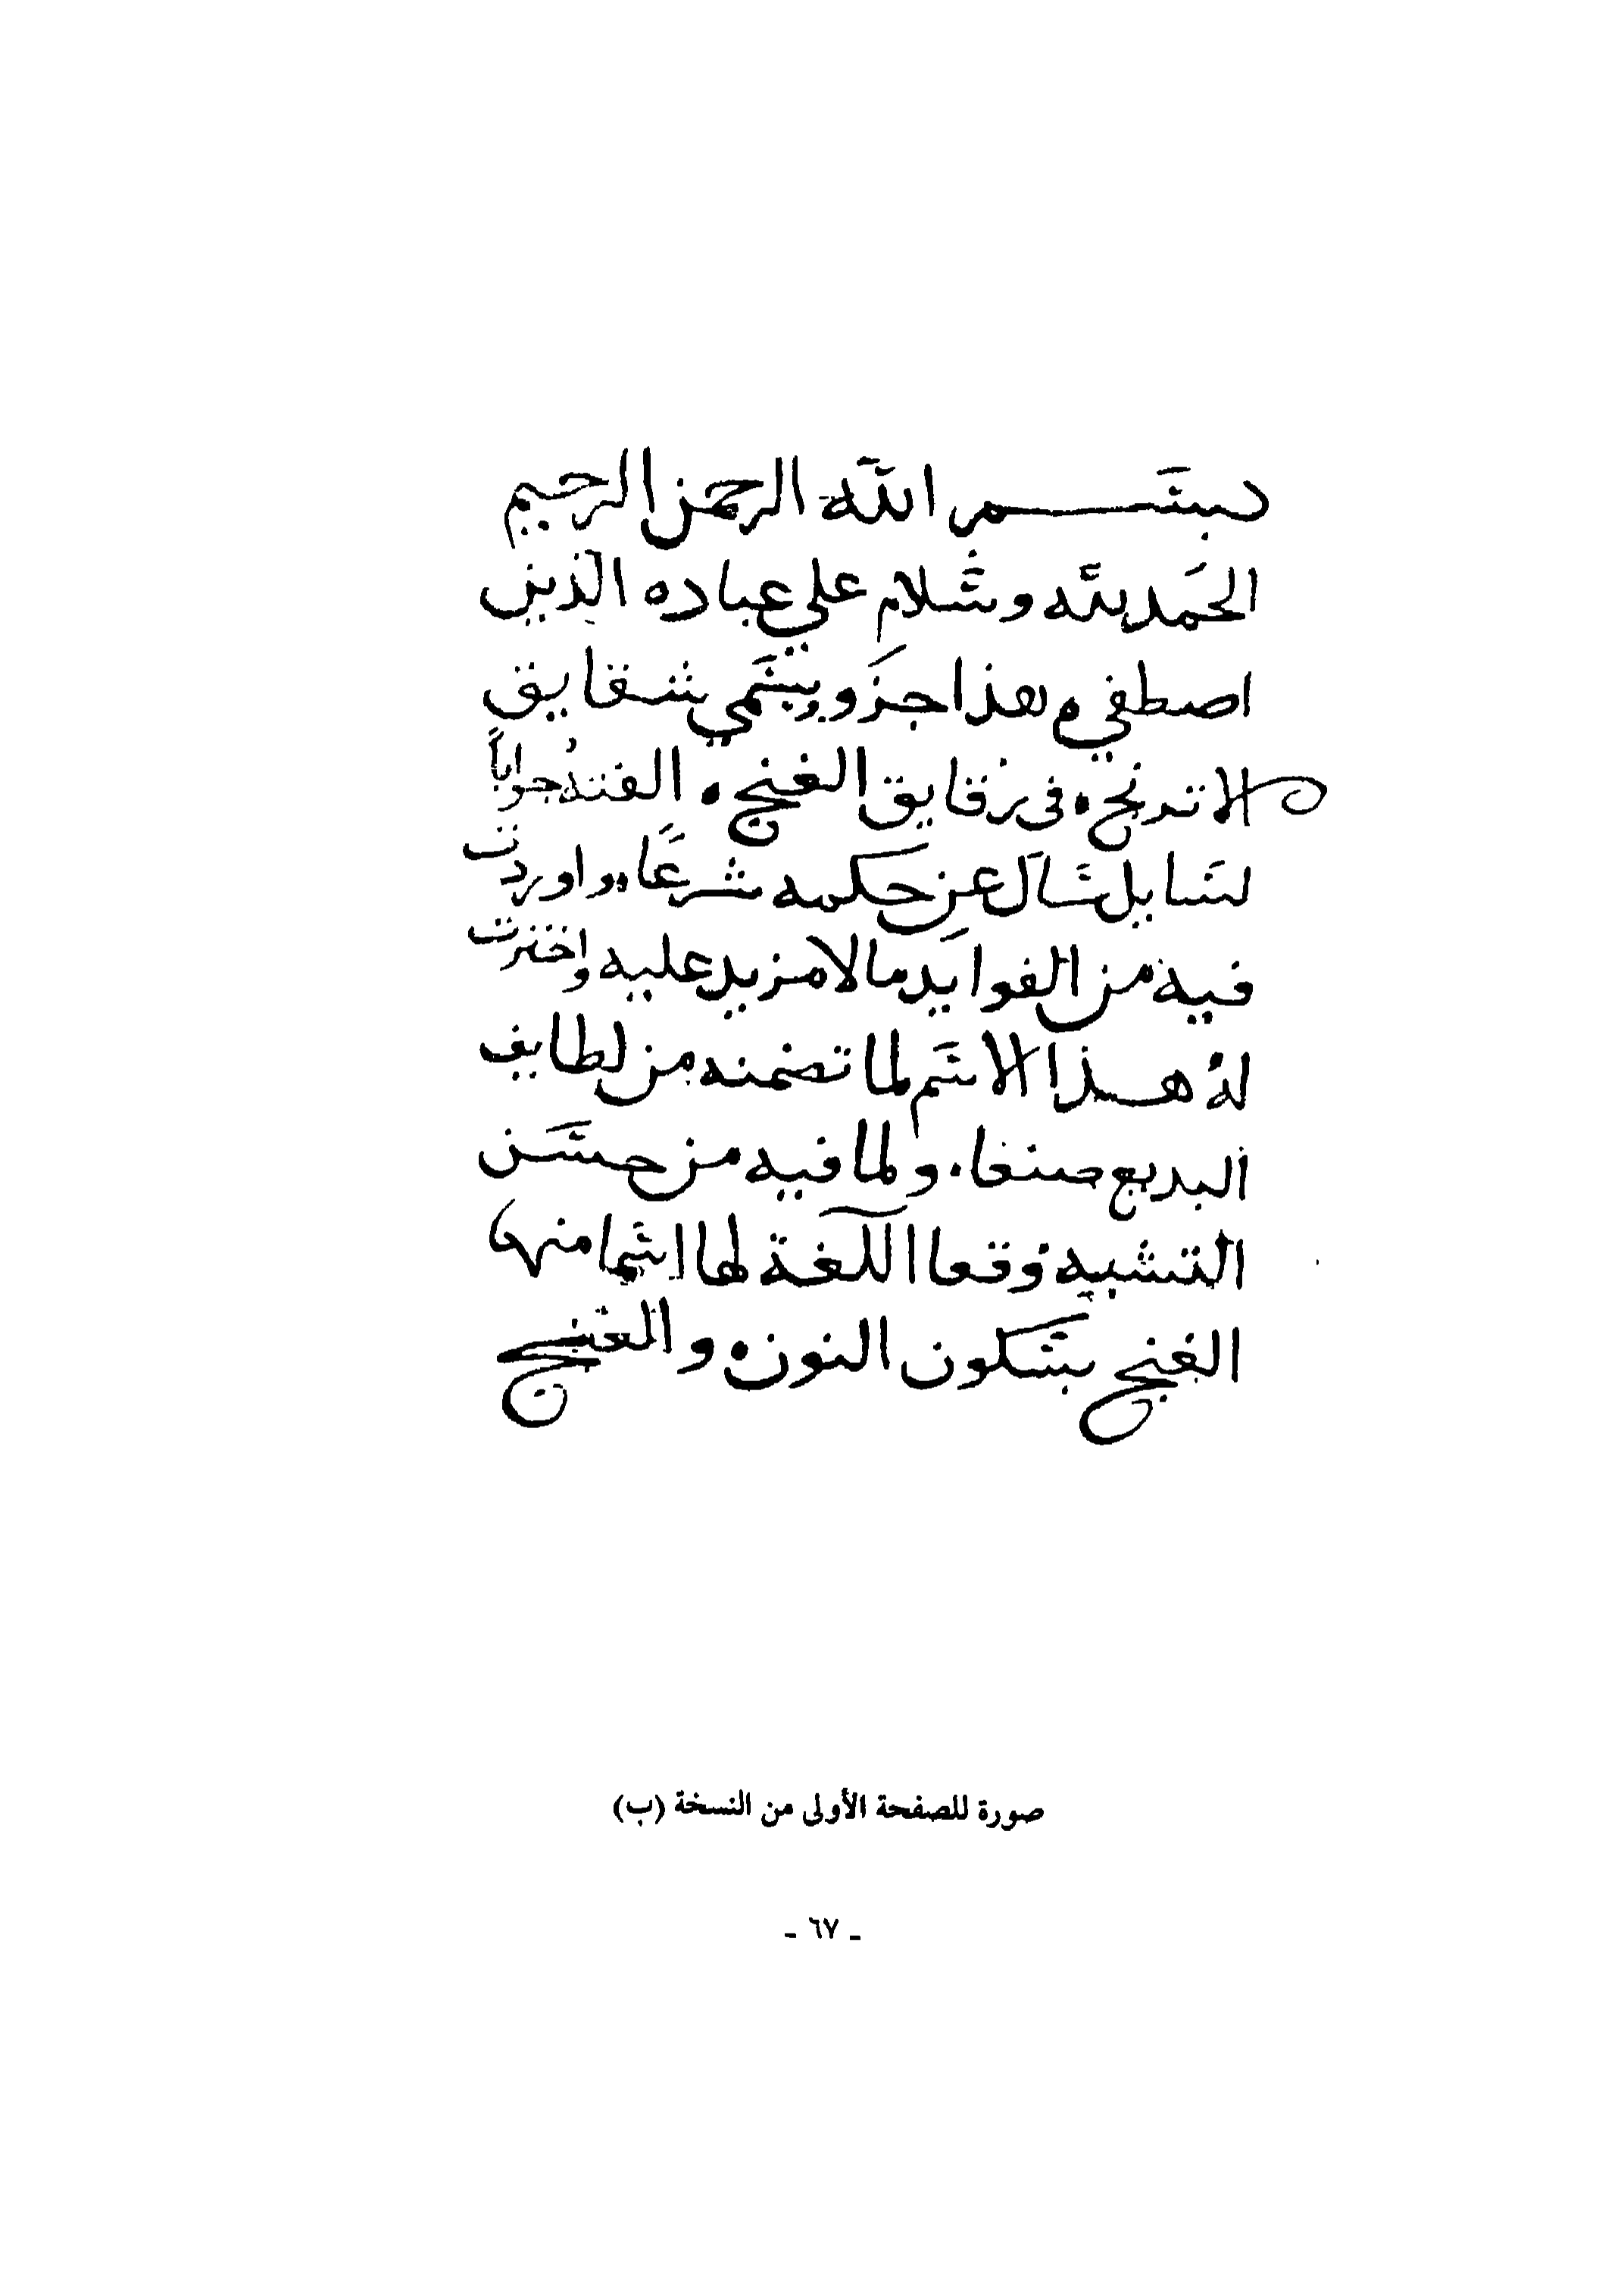 بسم الله الرحمن الرحيم
الحمد لله وسلام علي عباده الذين
اصطفي ه هذا جزو يسمي شقايق
الاترنج ه في رقايق الغنج ه الفته جواباً
لسايل سال عن حكمه شرعًا ه واوردت
فيه من الفوايد مالا مزيد عليه واخترت
له هذا الاسم لما تضمنه من لطايف
البديع صنعا . ولما فيه من حسن
التشبيه وقعا اللغة لها اسما منها
الغنج بسكون النون ه والغنج
صورة للصفحة الأولى من النسخة (ب)
- ٦٧ -